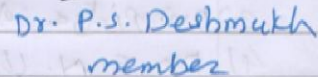 Dr. P.S. Deshmukh
member